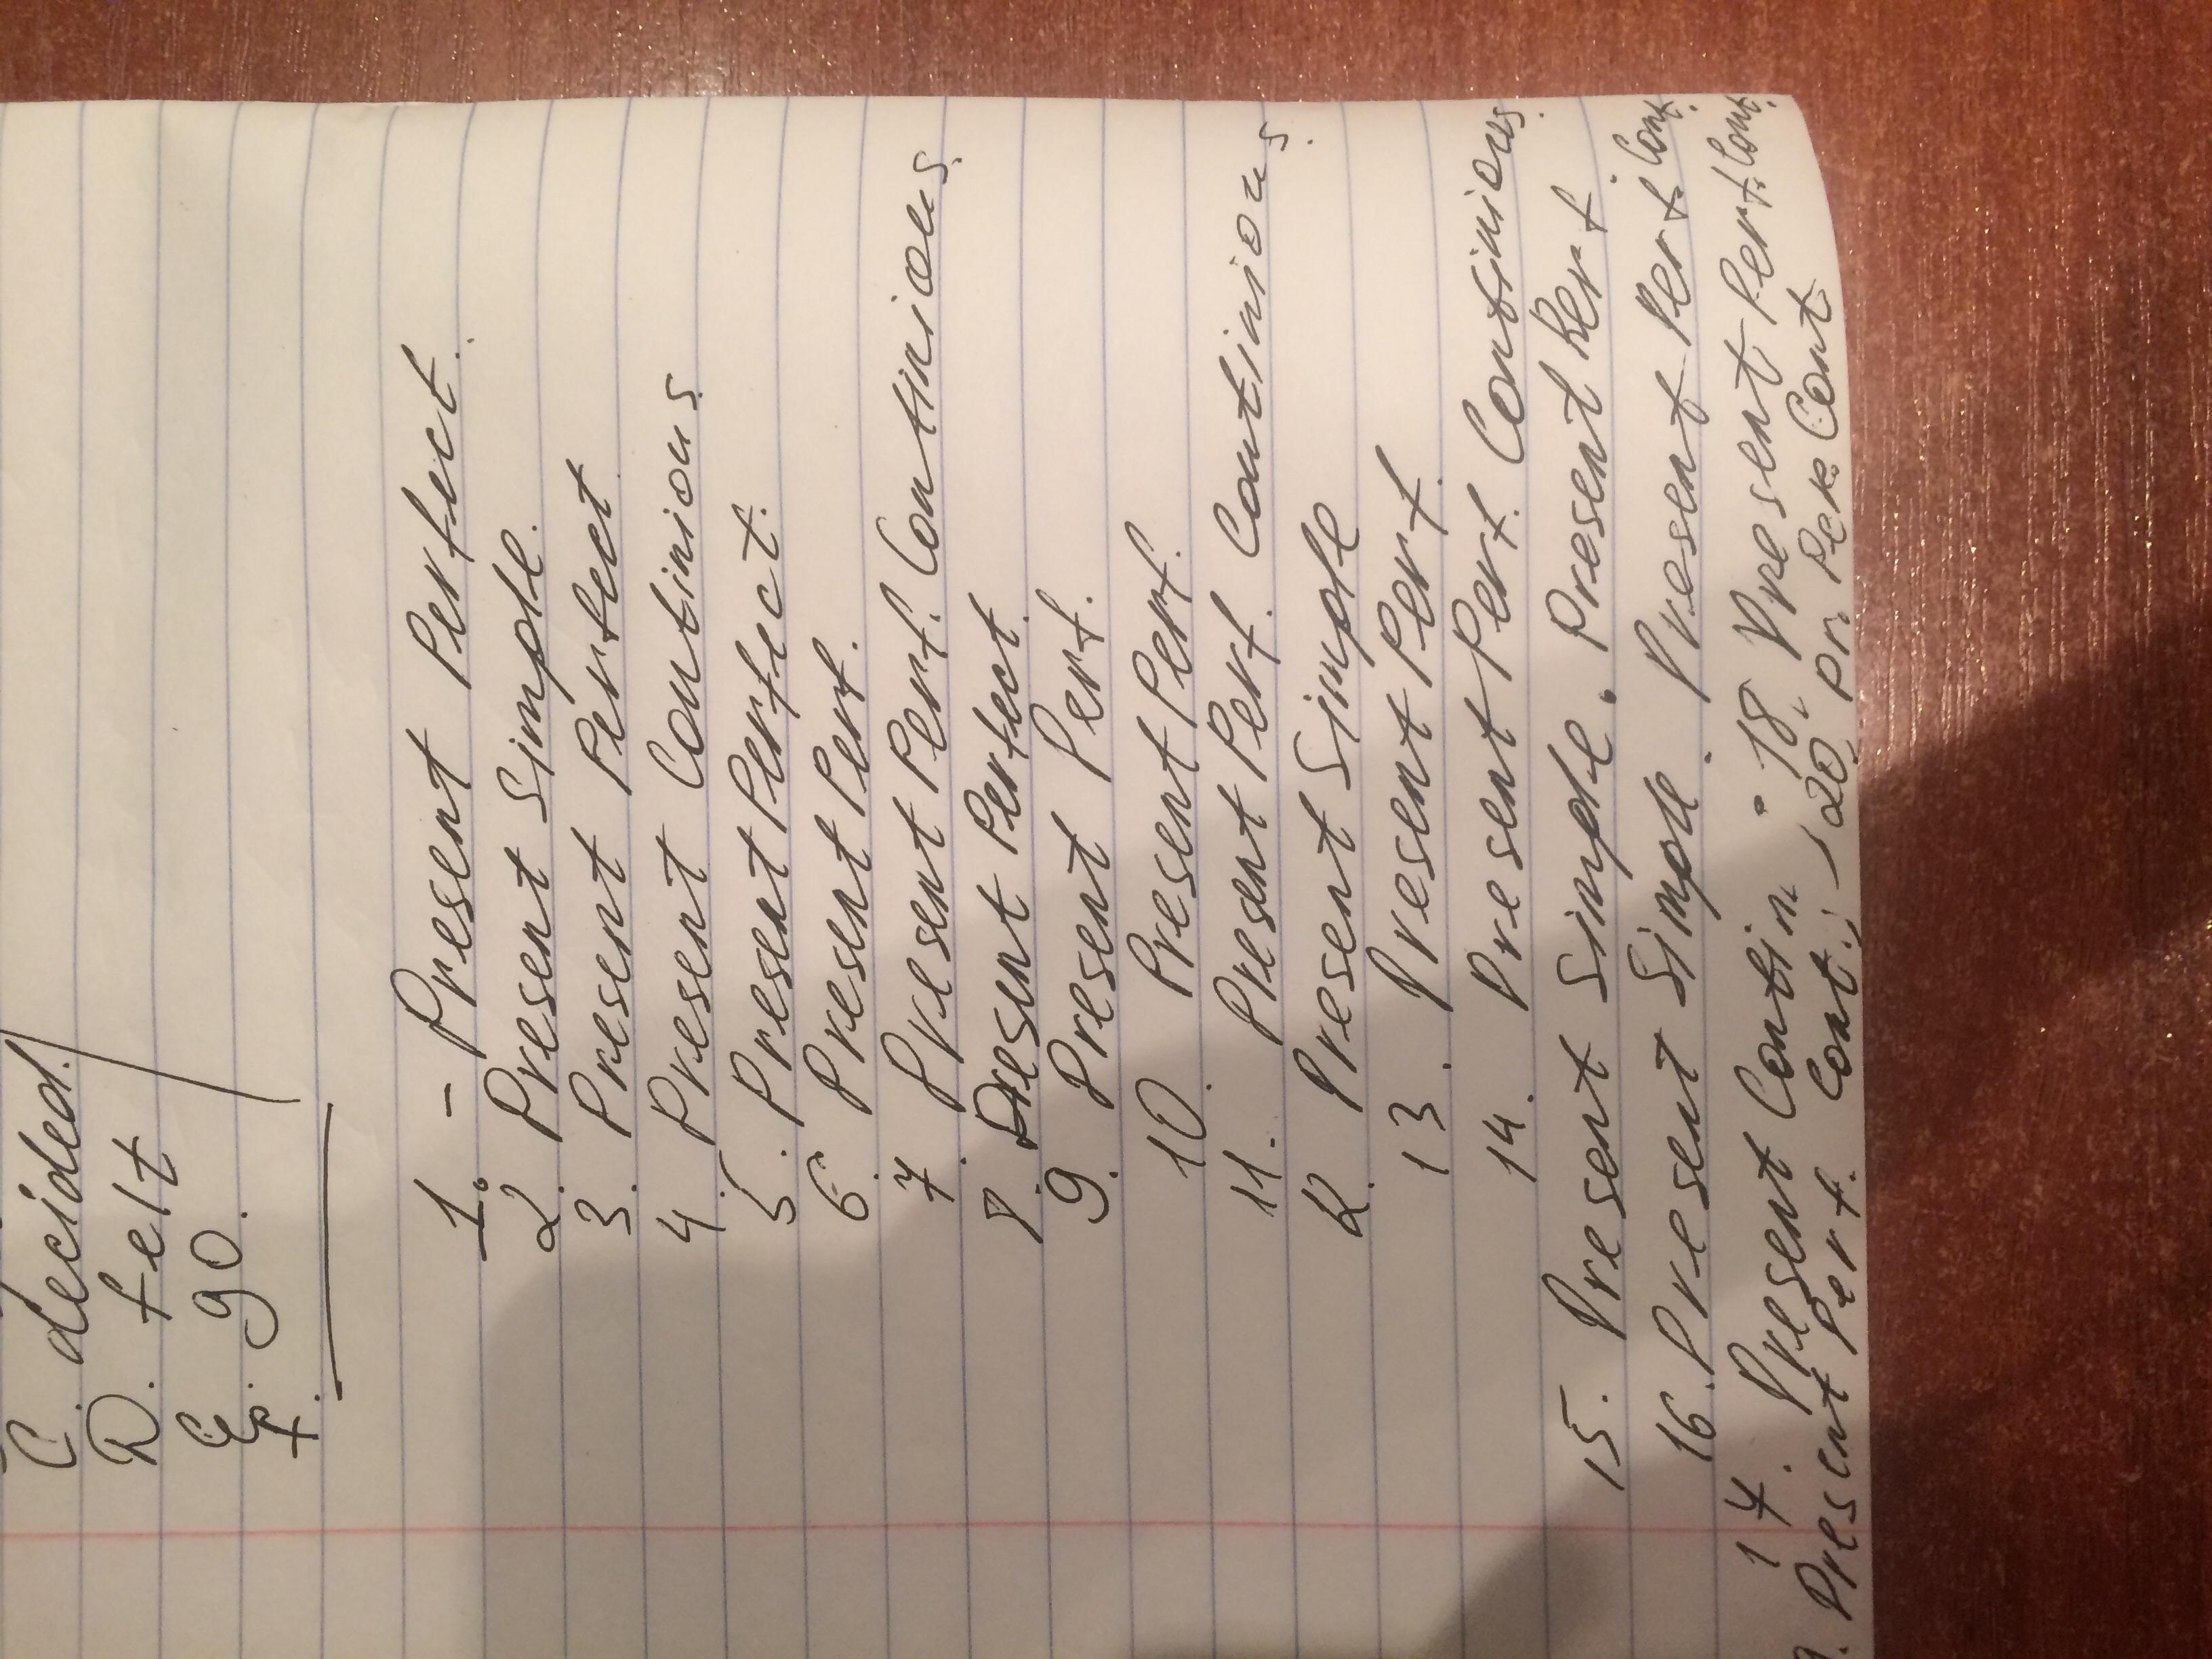 C. decided.
D. felt
E. go.
F.
1. - Present Perfect.
2. Present Simple.
3. Present Perfect
4. Present Continious
5. Present Perfect.
6. Present Perf.
7. Present Perf. Continious.
8. Present Perfect.
9. Present Perf.
10. Present Perf.
11. Present Perf. Continious.
12. Present Simple
13. Present Perf.
14. Present Perf. Continious.
15. Present Simple. Present Perf.
16. Present Simple. Present Perf. Cont.
17. Present Contin. 18. Present Perf. Cont.
9. Present Perf. Cont.; 20. Pr. Cont